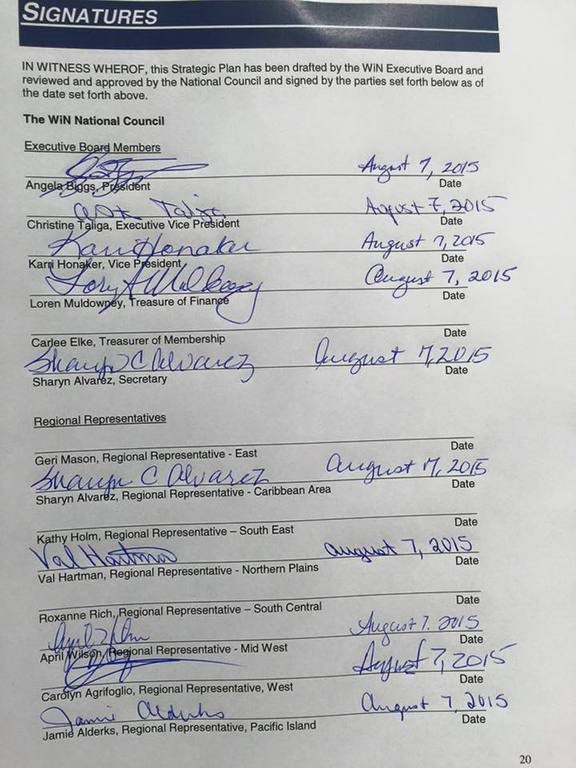 SIGNATURES
IN WITNESS WHEROF, this Strategic Plan has been drafted by the WiN Executive Board and
reviewed and approved by the National Council and signed by the parties set forth below as of
the date set forth above.
The WiN National Council
Executive Board Members
August 7, 2015
Angela Biggs, President Date
Taliga August 7, 2015
Christine Taliga, Executive Vice President Date
Karri Honaker August 7, 2015
Karri Honaker, Vice President Date
August 7, 2015
Loren Muldowney, Treasure of Finance Date
Carlee Elke, Treasurer of Membership Date
Sharyn C Alvarez August 7, 2015
Sharyn Alvarez, Secretary Date
Regional Representatives
Geri Mason, Regional Representative - East Date
Sharyn C Alvarez August 7, 2015
Sharyn Alvarez, Regional Representative - Caribbean Area Date
Kathy Holm, Regional Representative – South East Date
Val Hartman August 7, 2015
Val Hartman, Regional Representative - Northern Plains Date
Roxanne Rich, Regional Representative – South Central Date
August 7, 2015
April Wilson, Regional Representative - Mid West Date
August 7, 2015
Carolyn Agrifoglio, Regional Representative, West Date
Jamie Alderks August 7, 2015
Jamie Alderks, Regional Representative, Pacific Island Date
20